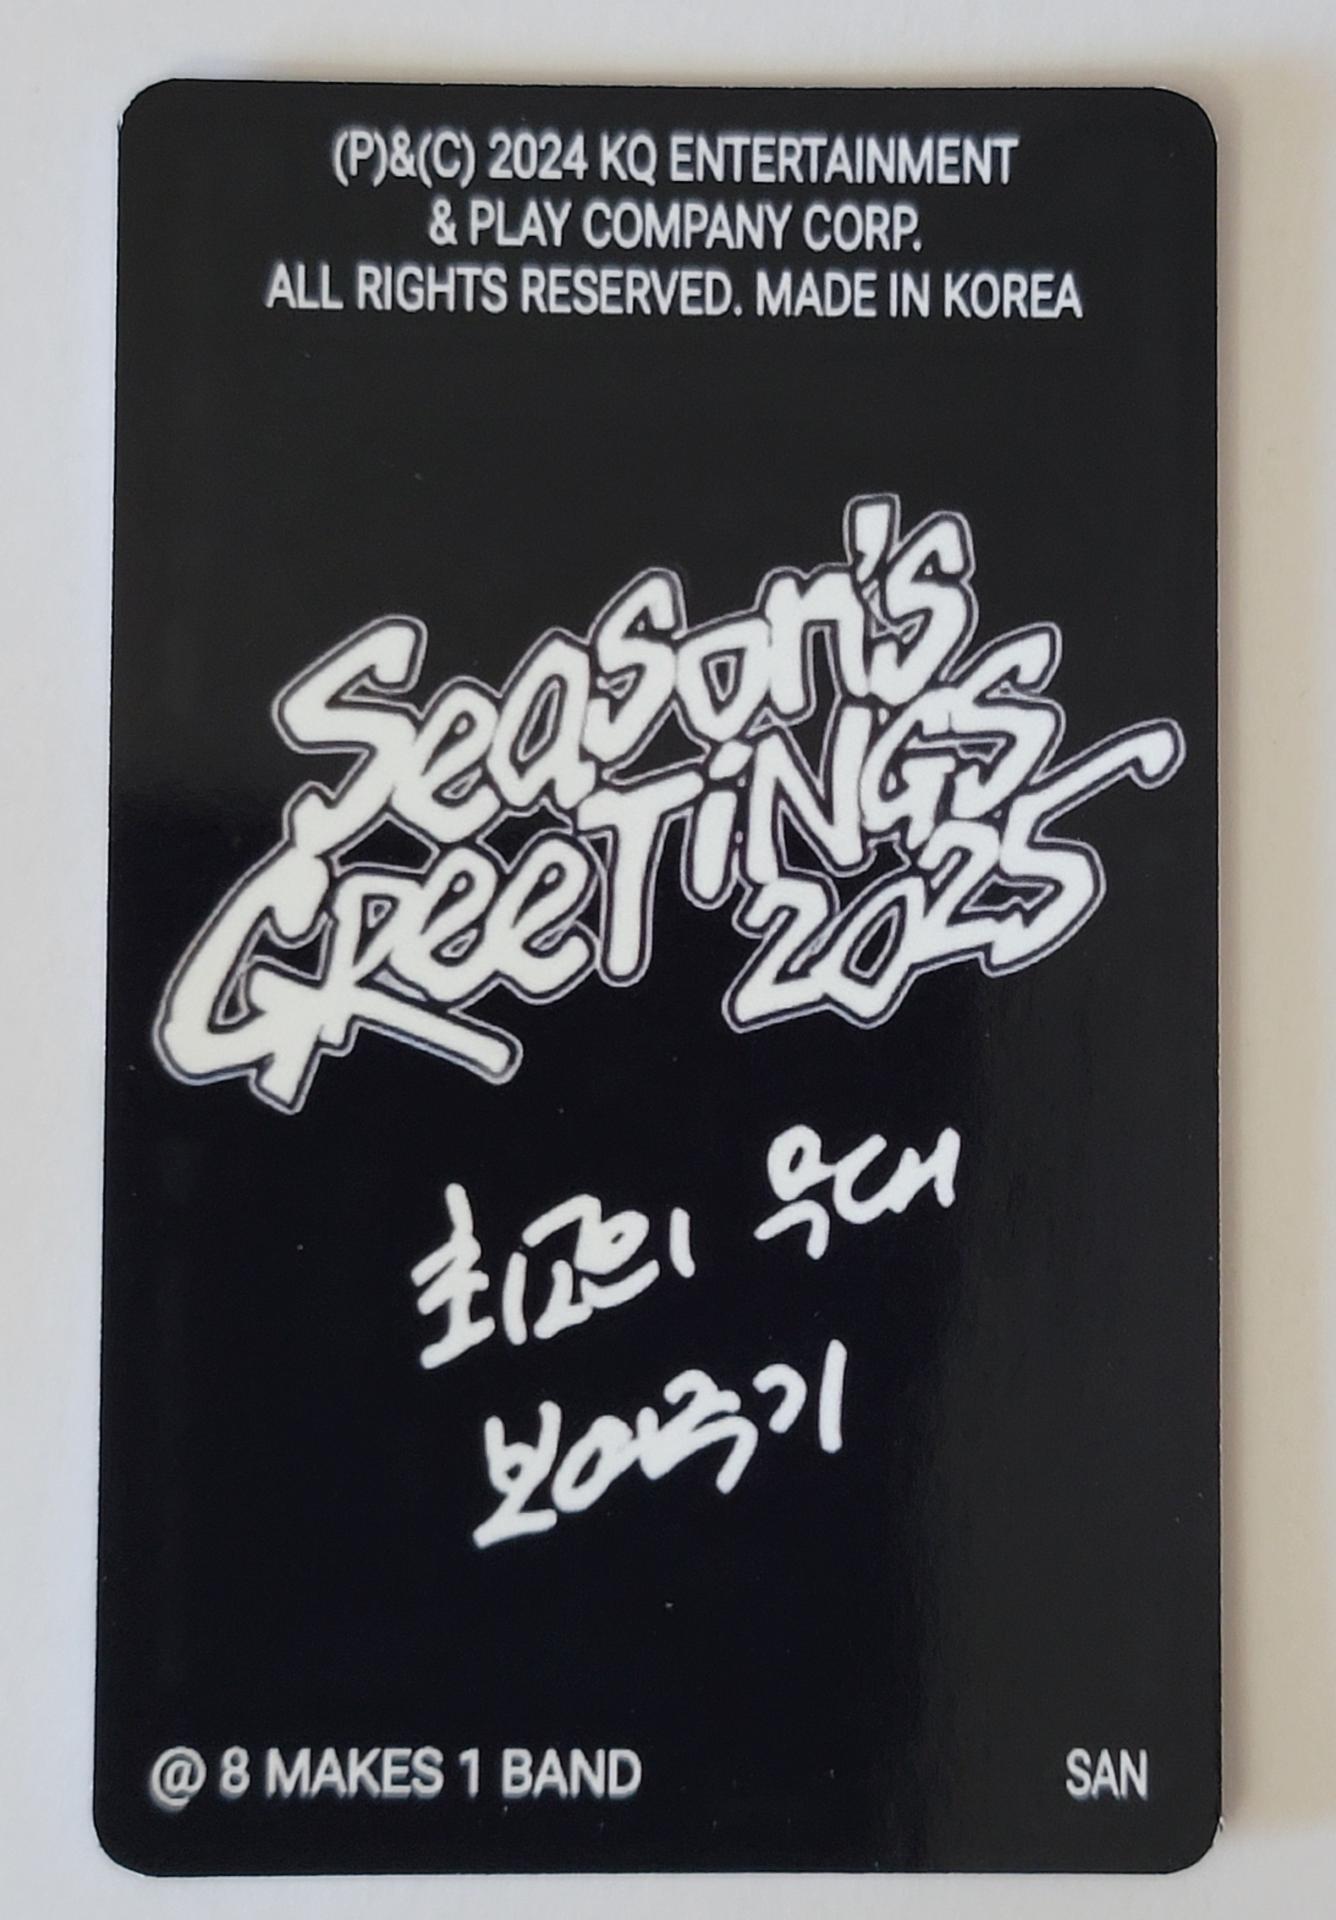 (P)&(C) 2024 KQ ENTERTAINMENT
& PLAY COMPANY CORP.
ALL RIGHTS RESERVED. MADE IN KOREA
Season's
GReeTiNGS
2025
최고의 무대
보여주기
@ 8 MAKES 1 BAND
SAN